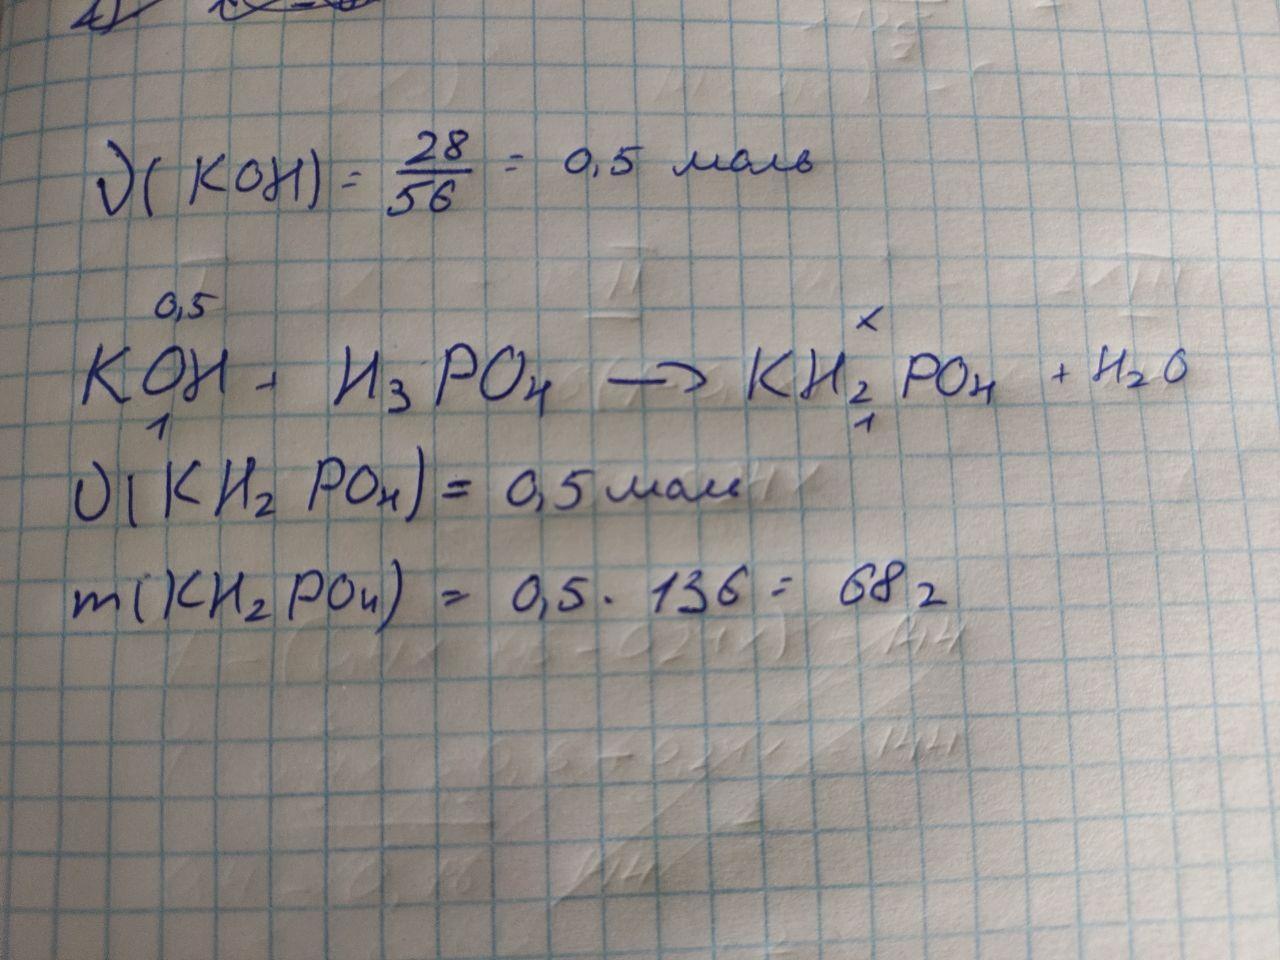 ν(KOH) = 28/56 = 0,5 моль
0,5 x
KOH + H₃PO₄ → KH₂PO₄ + H₂O
1 1
ν(KH₂PO₄) = 0,5 моль
m(KH₂PO₄) = 0,5 · 136 = 68 г